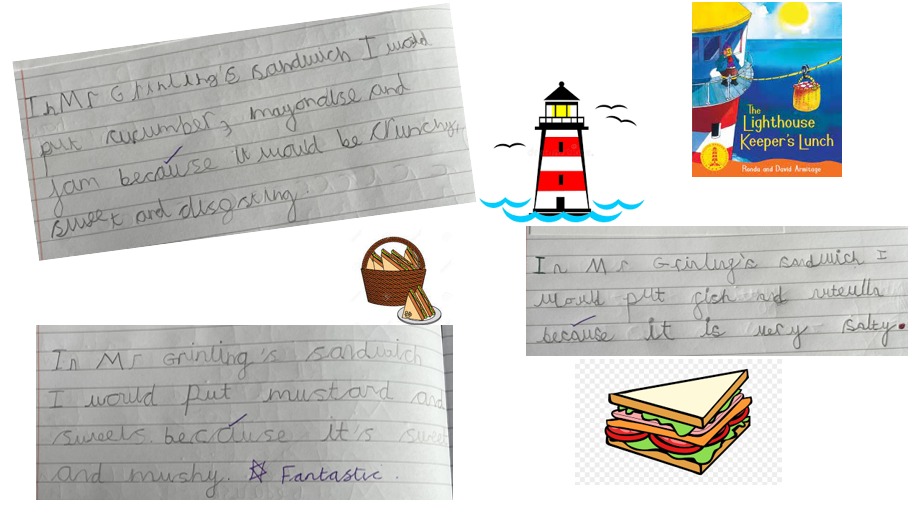 In Mr Grinling's sandwich I would
put cucumber, mayonaise and
jam because it would be crunchy,
sweet and disgsting.
The
Lighthouse
Keeper's Lunch
Ronda and David Armitage
In Mr Grinling's sandwich I
would put fish and nutella
because it is very salty.
In Mr Grinling's sandwich
I would put mustard and
sweets because it's sweet
and mushy. Fantastic.